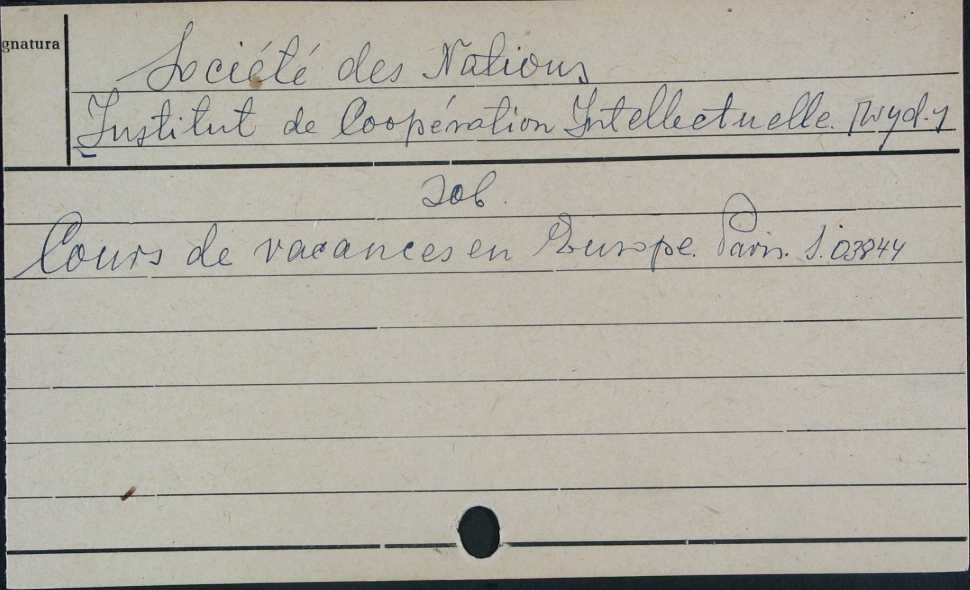 gnatura
Société des Nations
Institut de Coopération Intellectuelle. [wyd.]
zob.
Cours de vacances en Europe. Paris. S. 03844